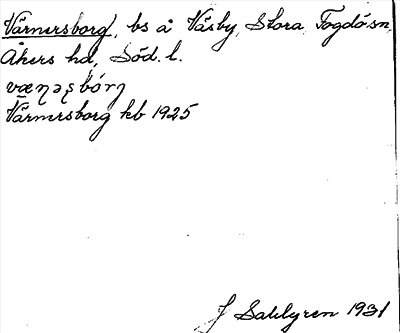 Värnersborg, bs å Väsby, Stora Fogdö sn,
Åkers hd, Söd. l.
Värnersborg kb 1925
J Sahlgren 1931